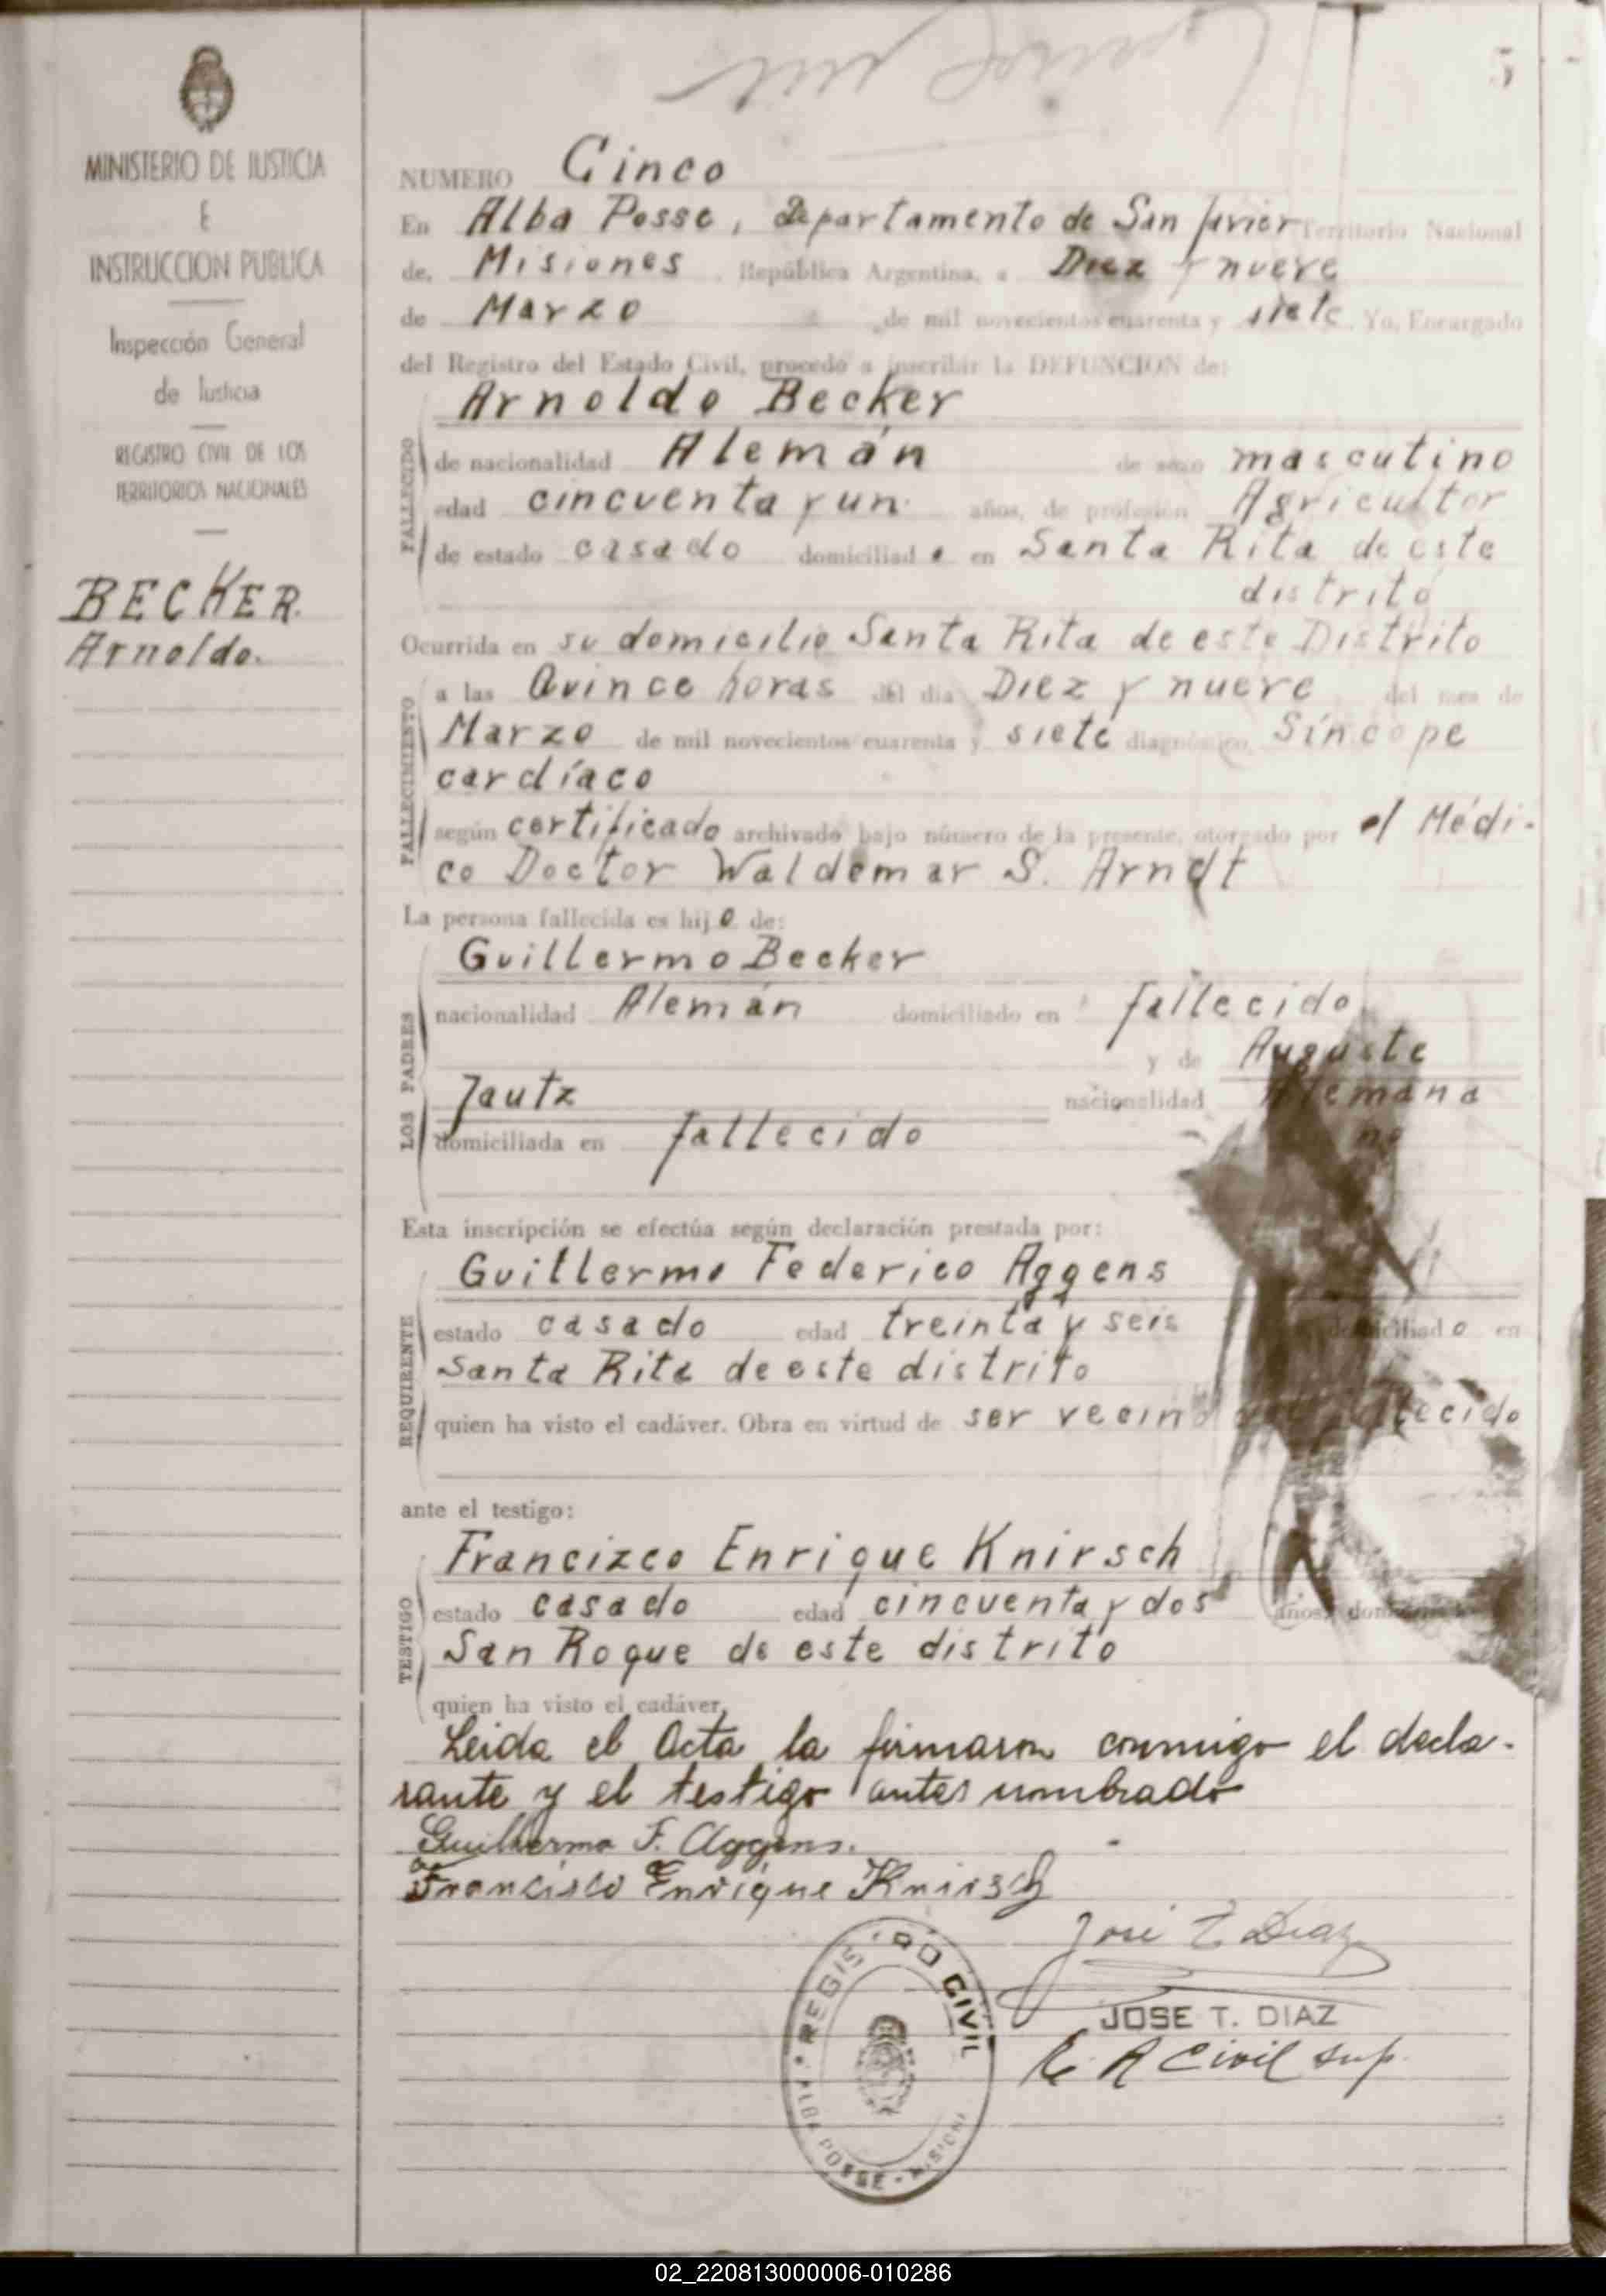 5
MINISTERIO DE JUSTICIA
E
INSTRUCCION PUBLICA
Inspección General
de Justicia
REGISTRO CIVIL DE LOS
TERRITORIOS NACIONALES
BECKER.
Arnoldo.
NUMERO Cinco
En Alba Posse, Departamento de San Javier Territorio Nacional
de, Misiones República Argentina, a Diez y nueve
de Marzo de mil novecientos cuarenta y siete Yo, Encargado
del Registro del Estado Civil, procedo a inscribir la DEFUNCION de:
FALLECIDO
Arnoldo Becker
de nacionalidad Alemán de sexo mascutino
edad cincuenta y un años, de profesión Agricultor
de estado casado domiciliado en Santa Rita de este
distrito
Ocurrida en su domicilio Santa Rita de este Distrito
FALLECIMIENTO
a las Quince horas del día Diez y nueve del mes de
Marzo de mil novecientos cuarenta y siete diagnóstico, Síncope
cardíaco
según certificado archivado bajo número de la presente, otorgado por el Médi-
co Doctor Waldemar S. Arndt
La persona fallecida es hijo de:
LOS PADRES
Guillermo Becker
nacionalidad Alemán domiciliado en fallecido
y de Auguste
Jautz nacionalidad Alemana
domiciliada en fallecido
Esta inscripción se efectúa según declaración prestada por:
REQUIRENTE
Guillermo Federico Aggens
estado casado edad treinta y seis domiciliado en
Santa Rita de este distrito
quien ha visto el cadáver. Obra en virtud de ser vecino
ante el testigo:
TESTIGO
Francizco Enrique Knirsch
estado casado edad cincuenta y dos años,
San Roque de este distrito
quien ha visto el cadáver,
Leida el Acta la firmaron conmigo el decla-
rante y el testigo antes nombrado
Guilherme F. Aggens.
Francisco Enrique Knirsch
José T. Diaz
JOSE T. DIAZ
E. R Civil sup.
REGIS RO CIVIL
ALBA POSSE - MISIONE
02_220813000006-010286